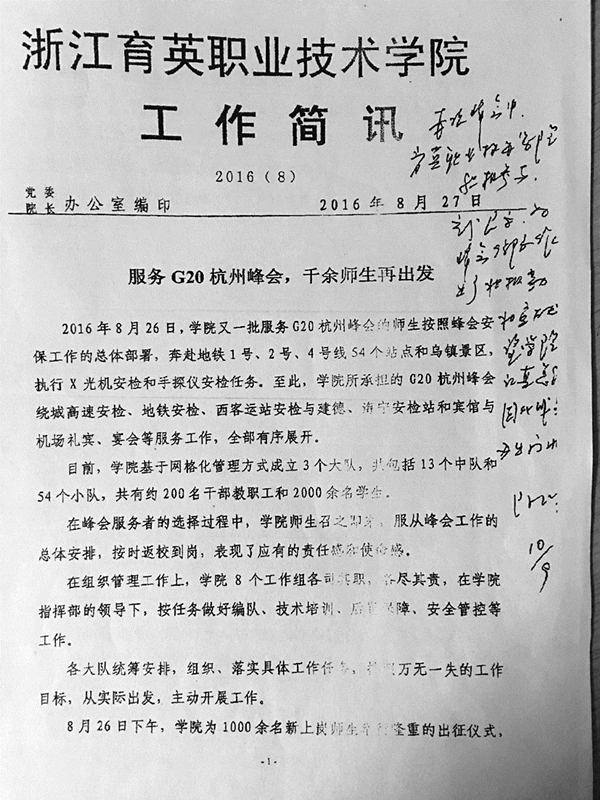 浙江育英职业技术学院
工作简讯
2016（8）
党委
院长 办公室编印 2016年8月27日
服务G20杭州峰会，千余师生再出发
2016年8月26日，学院又一批服务G20杭州峰会的师生按照峰会安
保工作的总体部署，奔赴地铁1号、2号、4号线54个站点和乌镇景区，
执行X光机安检和手探仪安检任务。至此，学院所承担的G20杭州峰会
绕城高速安检、地铁安检、西客运站安检与建德、海宁安检站和宾馆与
机场礼宾、宴会等服务工作，全部有序展开。
目前，学院基于网格化管理方式成立3个大队，共包括13个中队和
54个小队，共有约200名干部教职工和2000余名学生。
在峰会服务者的选择过程中，学院师生召之即来，服从峰会工作的
总体安排，按时返校到岗，表现了应有的责任感和使命感。
在组织管理工作上，学院8个工作组各司其职，各尽其责，在学院
指挥部的领导下，按任务做好编队、技术培训、后勤保障、安全管控等
工作。
各大队统筹安排，组织、落实具体工作任务，按照万无一失的工作
目标，从实际出发，主动开展工作。
8月26日下午，学院为1000余名新上岗师生举行隆重的出征仪式，
-1-
10/9